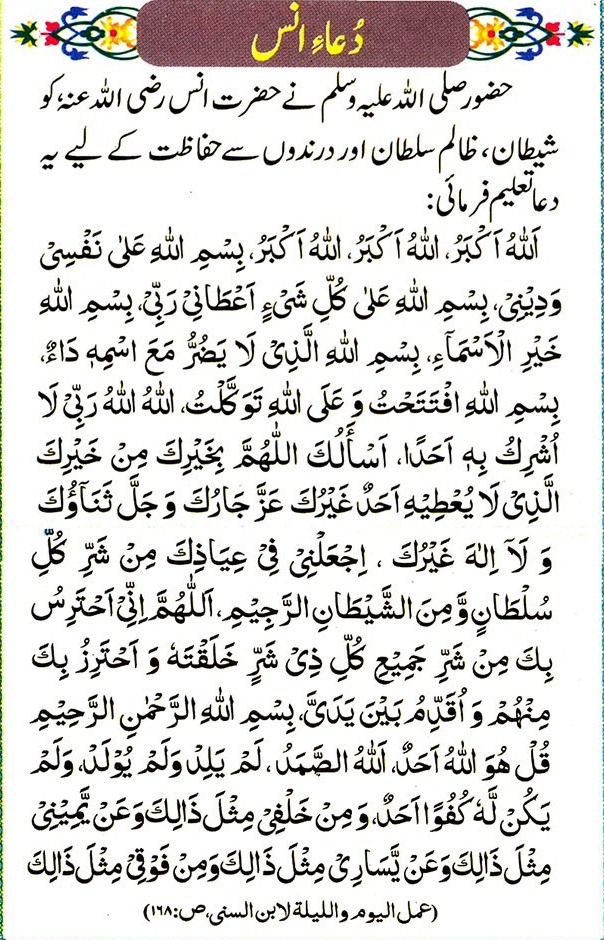 دُعاءِ انس
حضور صلی اللہ علیہ وسلم نے حضرت انس رضی اللہ عنہ، کو
شیطان، ظالم سلطان اور درندوں سے حفاظت کے لیے یہ
دعا تعلیم فرمائی:
اَللهُ اَكْبَرُ، اَللهُ اَكْبَرُ، اَللهُ اَكْبَرُ، بِسْمِ اللهِ عَلٰى نَفْسِىْ
وَدِيْنِىْ، بِسْمِ اللهِ عَلٰى كُلِّ شَىْءٍ اَعْطَانِىْ رَبِّىْ، بِسْمِ اللهِ
خَيْرِ الْاَسْمَآءِ، بِسْمِ اللهِ الَّذِىْ لَا يَضُرُّ مَعَ اسْمِهٖ دَاءٌ،
بِسْمِ اللهِ افْتَتَحْتُ وَ عَلَى اللهِ تَوَكَّلْتُ، اَللهُ اَللهُ رَبِّىْ لَا
اُشْرِكُ بِهٖ اَحَدًا، اَسْأَلُكَ اللّٰهُمَّ بِخَيْرِكَ مِنْ خَيْرِكَ
الَّذِىْ لَا يُعْطِيْهِ اَحَدٌ غَيْرُكَ عَزَّ جَارُكَ وَ جَلَّ ثَنَآؤُكَ
وَ لَآ اِلٰهَ غَيْرُكَ ، اِجْعَلْنِىْ فِىْ عِيَاذِكَ مِنْ شَرِّ كُلِّ
سُلْطَانٍ وَّمِنَ الشَّيْطَانِ الرَّجِيْمِ، اَللّٰهُمَّ اِنِّىْ اَحْتَرِسُ
بِكَ مِنْ شَرِّ جَمِيْعِ كُلِّ ذِىْ شَرٍّ خَلَقْتَهٗ وَ اَحْتَرِزُ بِكَ
مِنْهُمْ وَ اُقَدِّمُ بَيْنَ يَدَىَّ، بِسْمِ اللهِ الرَّحْمٰنِ الرَّحِيْمِ
قُلْ هُوَ اللهُ اَحَدٌ، اَللهُ الصَّمَدُ، لَمْ يَلِدْ وَلَمْ يُوْلَدْ، وَلَمْ
يَكُنْ لَّهٗ كُفُوًا اَحَدٌ، وَ مِنْ خَلْفِىْ مِثْلَ ذَالِكَ وَعَنْ يَّمِيْنِىْ
مِثْلَ ذَالِكَ وَعَنْ يَّسَارِىْ مِثْلَ ذَالِكَ وَمِنْ فَوْقِىْ مِثْلَ ذَالِكَ
(عمل اليوم والليلة لابن السنى، ص: ١٦٨)